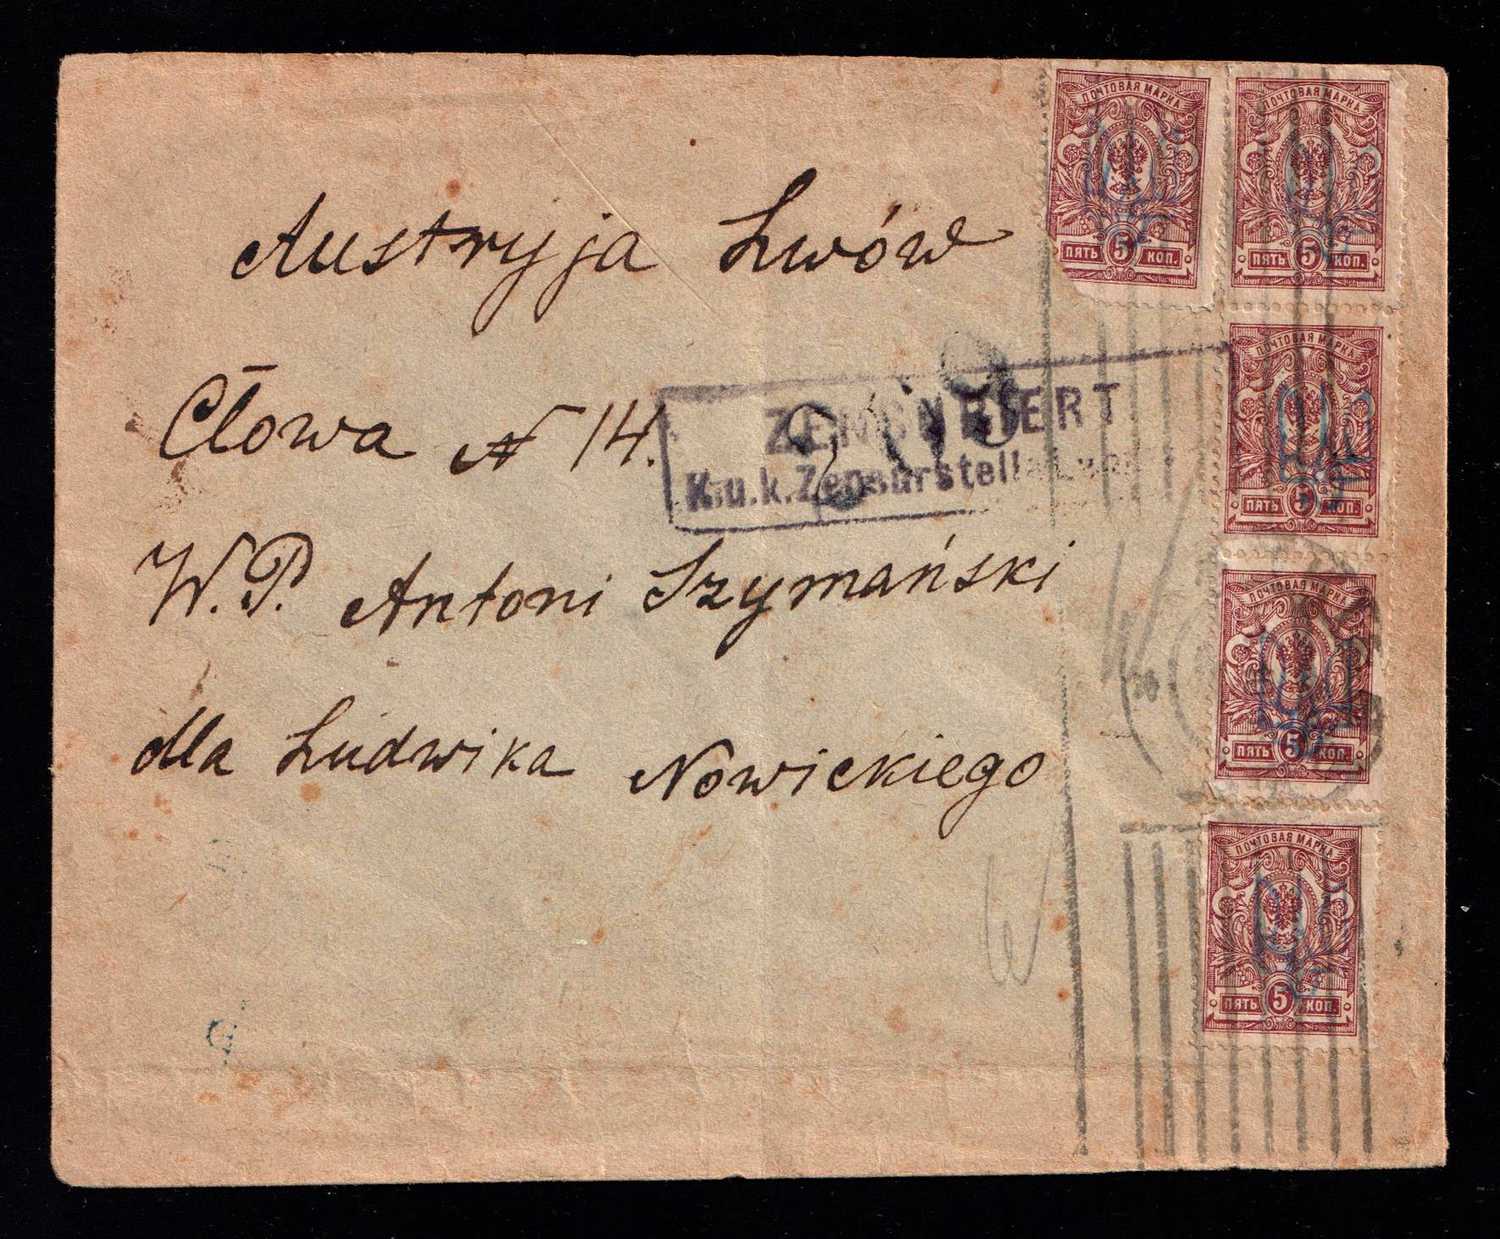 Austryja Lwów
Cłowa № 14.
W.P. Antoni Szymański
dla Ludwika Nowickiego
ZENSURIERT
K.u.k. Zensurstelle
ПОЧТОВАЯ МАРКА
ПЯТЬ 5 КОП.
ПОЧТОВАЯ МАРКА
ПЯТЬ 5 КОП.
ПОЧТОВАЯ МАРКА
ПЯТЬ 5 КОП.
ПОЧТОВАЯ МАРКА
ПЯТЬ 5 КОП.
ПОЧТОВАЯ МАРКА
ПЯТЬ 5 КОП.